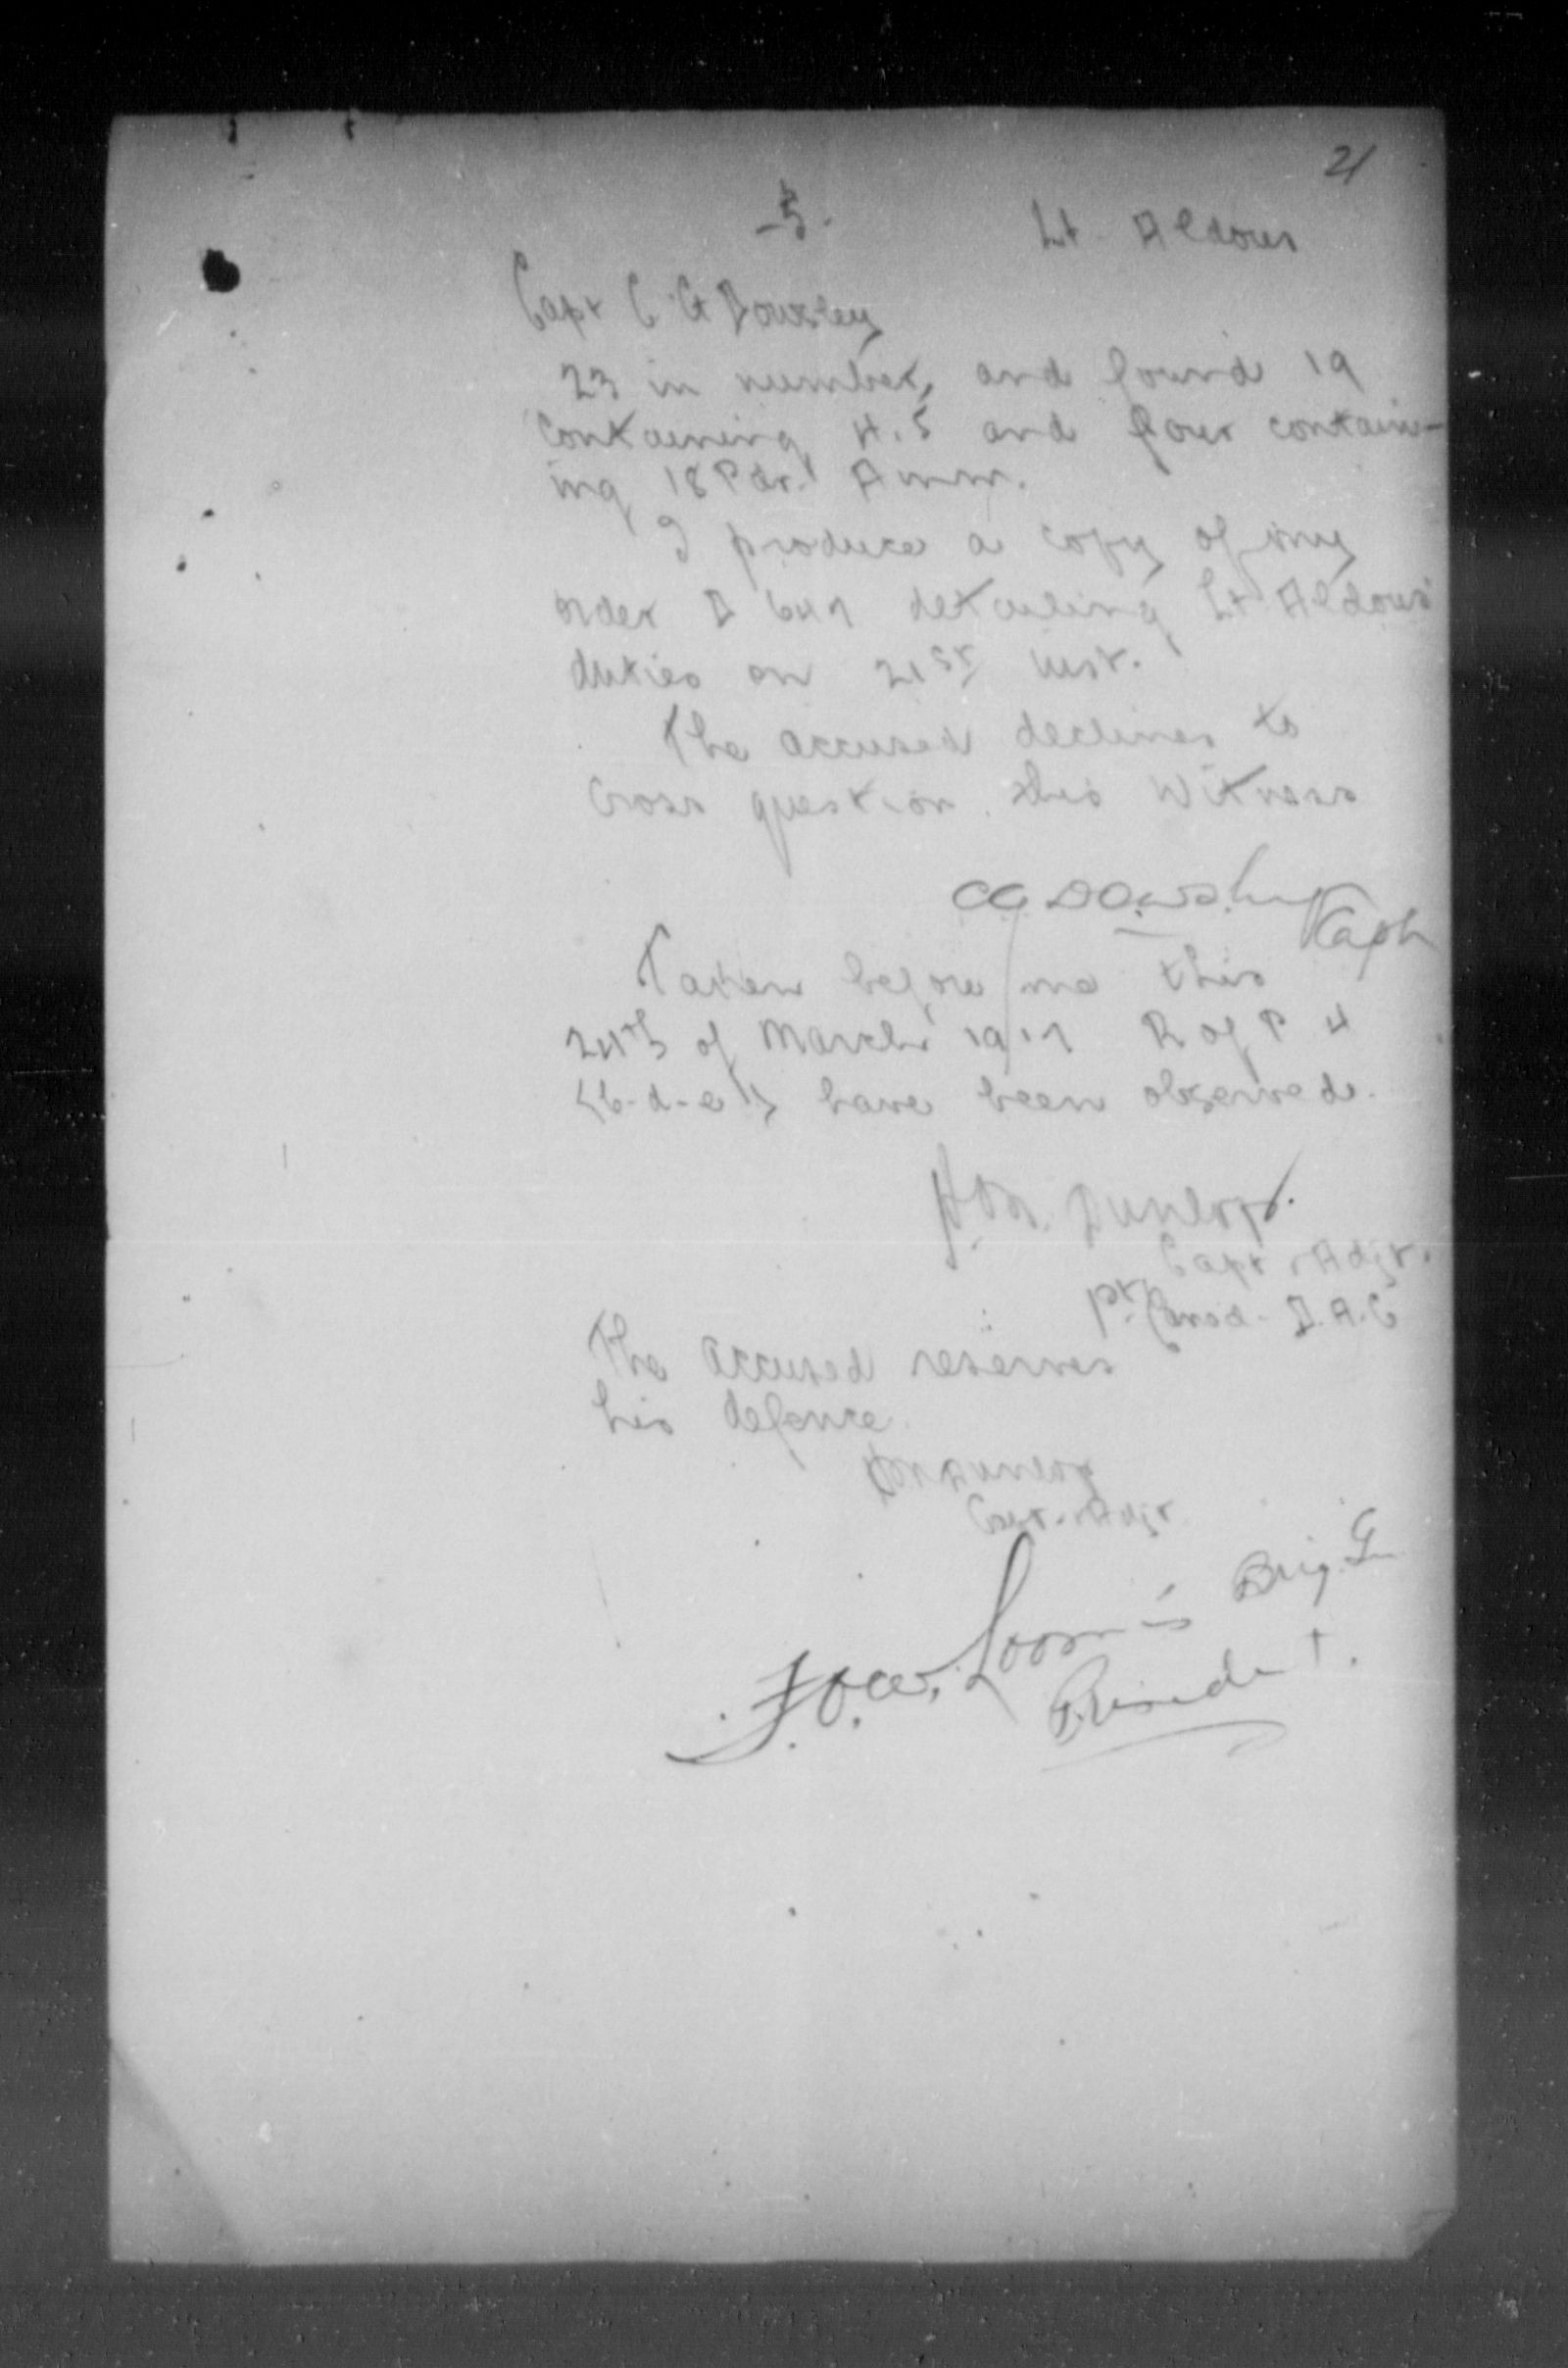 21
-5-
Lt Aldous
Capt C G Dowsley
23 in number, and found 19
containing 4.5 and four contain-
ing 18 Pdr. Amm.
I produce a copy of my
order D 647 detailing Lt Aldous'
duties on 21st inst.
The accused declines to
cross question this Witness
CG Dowsley Capt
Taken before me this
24th of March 1917 R of P 4
(b-d-e) have been observed.
Dunlop.
Capt. Adjt.
Cnd. D.A.C
The accused reserves
his defence.
Dunlop
Capt. Adjt
F.O.W. Loomis Brig. Gen
President.